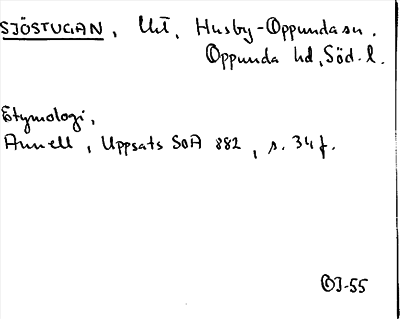 SJÖSTUGAN, Ut, Husby-Oppunda sn.
Oppunda hd, Söd. l.
Etymologi,
Annell, Uppsats SOA 882, s. 34 f.
OJ-55